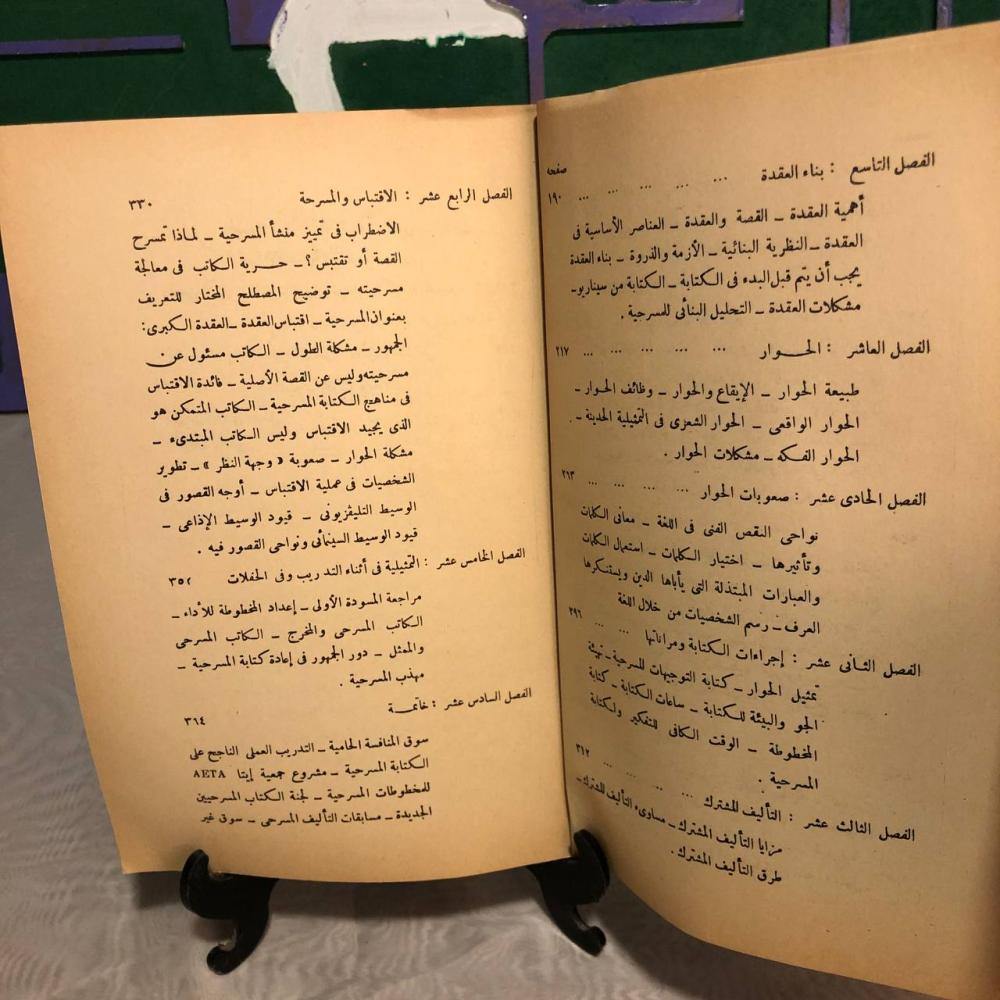 صفحه
الفصل التاسع : بناء العقدة ... ... ... ... ... ١٩٠
أهمية العقدة ــ القصة والعقدة ــ العناصر الأساسية فى
العقدة ــ النظرية البنائية ــ الأزمة والذروة ــ بناء العقدة
يجب أن يتم قبل البدء فى الكتابة ــ الكتابة من سيناريو ــ
مشكلات العقدة ــ التحليل البنائى للمسرحية .
الفصل العاشر : الحـوار ... ... ... ... ... ٢١٧
طبيعة الحوار ــ الإيقاع والحوار ــ وظائف الحوار ــ
الحوار الواقعى ــ الحوار الشعرى فى التمثيلية الحديثة ــ
الحوار الفكه ــ مشكلات الحوار .
الفصل الحادى عشر : صعوبات الحوار ... ... ... ... ٢٦٣
نواحى النقص الفنى فى اللغة ــ معانى الكلمات
وتأثيرها ــ اختيار الكلمات ــ استعمال الكلمات
والعبارات المبتذلة التى يأباها الدين ويستنكرها
العرف ــ رسم الشخصيات من خلال اللغة
الفصل الثانى عشر : إجراءات الكتابة ومراناتها ... ... ٢٩٦
تمثيل الحوار ــ كتابة التوجيهات المسرحية ــ تهيئة
الجو والبيئة للكتابة ــ ساعات الكتابة ــ كتابة
المخطوطة ــ الوقت الكافى للتفكير ولكتابة
المسرحية .
الفصل الثالث عشر : التأليف المشترك ... ... ... ... ٣١٢
مزايا التأليف المشترك ــ مساوىء التأليف المشترك ــ
طرق التأليف المشترك .
الفصل الرابع عشر : الاقتباس والمسرحة ٣٣٠
الاضطراب فى تمييز منشأ المسرحية ــ لماذا تمسرح
القصة أو تقتبس ؟ ــ حـرية الكاتب فى معالجة
مسرحيته ــ توضيح المصطلح المختار للتعريف
بعنوان المسرحية ــ اقتباس العقدة ــ العقدة الكبرى:
الجمهور ــ مشكلة الطول ــ الكاتب مسئول عن
مسرحيته وليس عن القصة الأصلية ــ فائدة الاقتباس
فى مناهج الكتابة المسرحية ــ الكاتب المتمكن هو
الذى يجيد الاقتباس وليس الكاتب المبتدىء ــ
مشكلة الحوار ــ صعوبة « وجهة النظر » ــ تطوير
الشخصيات فى عملية الاقتباس ــ أوجه القصور فى
الوسيط التليفزيونى ــ قيود الوسيط الإذاعى ــ
قيود الوسيط السينمائى ونواحى القصور فيه .
الفصل الخامس عشر : التمثيلية فى أثناء التدريب وفى الحفلات ٣٥٢
مراجعة المسودة الأولى ــ إعداد المخطوطة للأداء ــ
الكاتب المسرحى والمخرج ــ الكاتب المسرحى
والممثل ــ دور الجمهور فى إعادة كتابة المسرحية ــ
مهذب المسرحية .
الفصل السادس عشر : خاتمـة ٣٦٤
سوق المنافسة الحامية ــ التدريب العملى الناجح على
الكتابة المسرحية ــ مشروع جمعية إيتا AETA
للمخطوطات المسرحية ــ لجنة الكتاب المسرحيين
الجديدة ــ مسابقات التأليف المسرحى ــ سوق غير